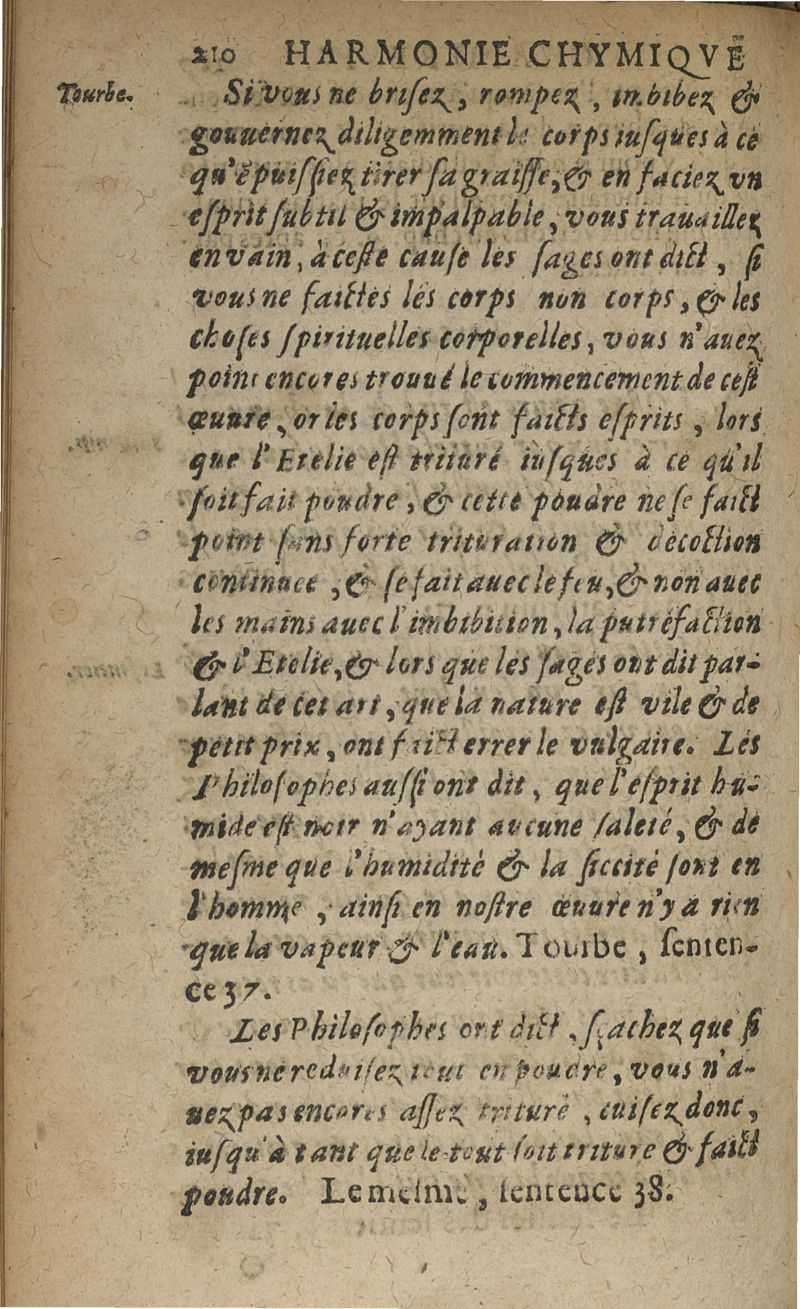 210 HARMONIE CHYMIQVE
Tourbe.
Si vous ne briſez, rompez, imbibez &
gouuernez diligemment le corps iuſques à ce
qu'ẽ puiſſiez tirer ſa graiſſe, & en faciez vn
eſprit ſubtil & impalpable, vous trauaillez
en vain, à ceſte cauſe les ſages ont dict, ſi
vous ne faictes les corps non corps, & les
choſes ſpirituelles corporelles, vous n'auez
point encores trouué le commencement de ceſt
œuure, or les corps ſont faicts eſprits, lors
que l'Etelie eſt trituré iuſques à ce qu'il
ſoit fait poudre, & cette poudre ne ſe faict
point ſans forte trituration & decoction
continuee, & ſe fait auec le feu, & non auec
les mains auec l'imbibition, la putrefaction
& l'Etelie, & lors que les ſages ont dit par-
lant de cet art, que la nature eſt vile & de
petit prix, ont faict errer le vulgaire. Les
Philoſophes auſſi ont dit, que l'eſprit hu-
mide eſt noir n'ayant aucune ſaleté, & de
meſme que l'humidité & la ſiccité ſont en
l'homme, ainſi en noſtre œuure n'y a rien
que la vapeur & l'eau. Tourbe, ſenten-
ce 37.
Les Philoſophes ont dict, ſçachez que ſi
vous ne reduiſez tout en poudre, vous n'a-
uez pas encores aſſez trituré, cuiſez donc,
iuſqu'à tant que le tout ſoit trituré & faict
poudre. Le meſme, ſentence 38.